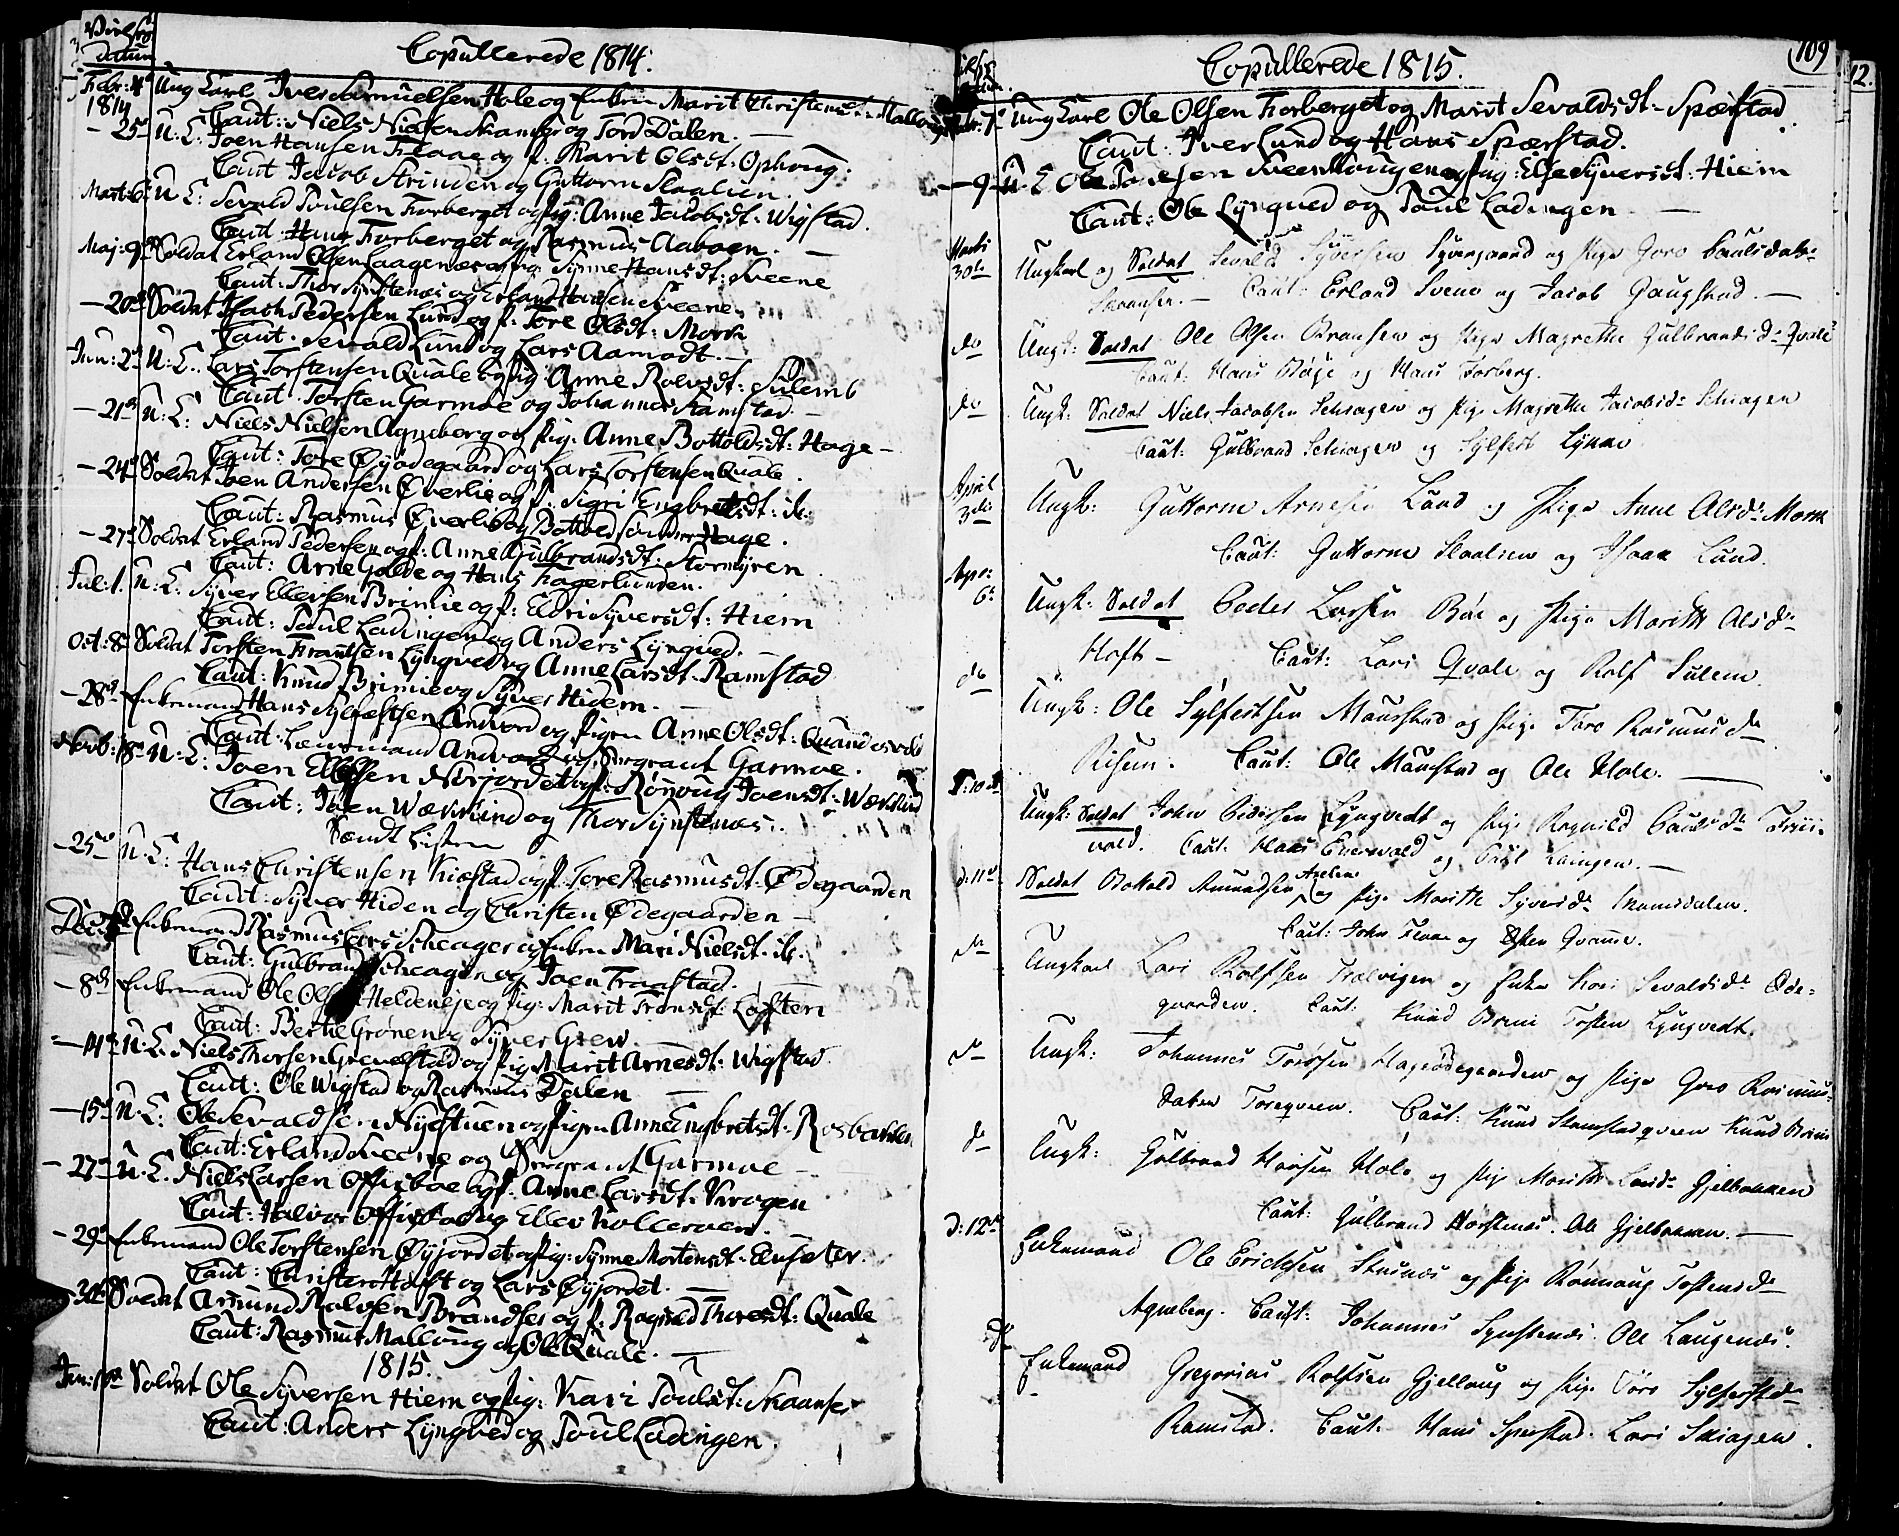 Vielses
datum
Copullerede 1814.
Febr: 4de Ung Karl Iver Samuelsen Hole og Enken Marit Christensdt: Mallong
1814
Caut: Niels Nielsen Skamsar og Tord Dalen. —
— 25de U: K: Joen Hansen Flaae og P. Marit Olsdt: Ophoug.
Caut Jacob Strinden og Guttorm Slaalien
Mart: 6 U: K: Sevald Poulsen Forberget og Pig: Anne Jacobsdt: Wigstad.
Caut. Hans Forberget og Rasmus Aaboen. —
Maj: 9de Soldat Erland Olsen Laagenæs og Pig: Synne Hansdt: Sveene
Caut: Thor Synstenæs og Erland Hansen Sveene.
— 20de Soldat Isach Pedersen Lund og P. Tore Olsdt: Mork
Caut: Sevald Lund og Lars Aamodt. —
Jun: 2de U: K: Lars Torstensen Quale og Pig: Anne Rolvsdt: Sulemb
Caut: Torsten Garmoe og Johannes Ramstad. —
— 21de U: K: Niels Nielsen Agneberg og Pig: Anne Bottolsdt: Hage —
Caut: Tore Øyodegaard og Lars Torstensen Quale.
— 24de Soldat Joen Andersen Øverlie og P. Sigri Engbretsdt: ib:
Caut: Rasmus Øverlie og Bottold Sønder Hage.
— 27de Soldat Erland Pedersen og P: Anne Gulbrandsdt: Stormyren
Caut: Arne Golde og Hans Fagerlunden.
Jul: 1. U: K: Syver Ellevsen Brimie og P: Eldri Syversdt: Hiem
Caut: Poul Ladingen og Anders Lyngved. —
Oct: 8 Soldat Torsten Frantsen Lyngved og Anne Larsdt: Ramstad
Caut: Knud Brimie og Syver Hidem. —
— 28de Enkemand Hans Sylfestsen Andvord og Pigen Anne Olsdt: Quandesvold
Caut: Lensmand Andvord og Sergeant Garmoe.
Novb: 18de U: K: Joen Ellefsen Norjordet og P: Rønnoug Joensdt: Wærkind
Caut: Joen Wærkind og Thor Synstenæs.
Sendt Listen
— 25de U: K: Hans Christensen Kiæstad og P. Tore Rasmusdt: Ødegaarden
Caut: Syver Hiden og Christen Ødegaarden —
Enkemand Rasmus Lars: Scheager og Enken Mari Nielsdt: ib.
Caut: Gulbrand Scheager og Joen Fraastad.
— 8de Enkemand Ole Ols: Heldenese og Pig: Marit Fronsdt: Løften
Caut: Bertil Grønen og Syver Grew. —
— 14de U: K: Niels Thorsen Grevelstad og Pig: Marit Arnesdt: Wigstad
Caut: Ole Wigstad og Rasmus Dalen —
— 15de U: K: Ole Sevaldsen Nystuen og Pigen Anne Engbretsdt: Rosbakken
Caut: Erland Sveene og Sergeant Garmoe —
— 27de U: K: Niels Larsen Offigsboe og P: Anne Larsdt: Krogen
Caut: Halvor Offigsboe og Ellev Kolleroen.
— 29de Enkemand Ole Torstensen Øyjordet og Pig: Synne Mortensdt: Ensæter.
Caut: Christen Hoft og Lars Øyjordet. —
— 30de Soldat Amund Ralvsen Brandser og P. Ragnild Thoresdt: Quale
Caut: Rasmus Mallong og Ole Quale. —
1815.
Jan: Soldat Ole Syversen Hiem og Pig: Kari Poulsdt: Skaanser
Caut: Anders Lyngved og Poul Ladingen.
109
12.
Copullerede 1815.
7de Ung Karl Ole Olsen Forberget og Marit Sevaldsdt: Spærstad
Caut: Iver Lund og Hans Spærstad.
— 9 U: K Ole Sveenhougen og Pig: Else Syversdt: Hiem
Caut: Ole Lyngved og Poul Ladingen —
Marti
30te Ungkarl og Soldat Sevald Syversen Syvergaard og Pige Goro Paulsdater
Skaanser. — Caut: Erland Svene og Jacob Gaugstad. —
do Ungk: Soldat Ole Olsen Bransen og Pige Magrethe Gulbrandsdr Qvale
Caut: Hans Bøje og Hans Forberg.
do Ungk: Soldat Niels Jacobsen Schiager og Pige Magrethe Jacobsdr Schiager
Caut: Gulbrand Schiager og Sylfest Lynne
April
3de Ungk: Guttorm Arnesen Lund og Pige Anne Olsdr Mork
Caut: Guttorm Slaalien og Isaak Lund.
Apr:
6te Ungk: Soldat Peder Larsen Bøe og Pige Marith Olsdr
Hoft — Caut: Lars Qvale og Rolf Sulem.
do Ungk: Ole Sylfestsen Maurstad og Pige Tore Rasmusdr
Risum. Caut: Ole Maurstad og Ole Hole. —
d: 10de Ungk: Soldat John Pedersen Lyngvedt og Pige Ragnild Paulsdr
vold. Caut: Hans og Paul Laingen. —
d: 11te Soldat Bottold Amundsen og Pige Marith Syversdr
Caut: John Flaae og Østen Qvamme.
do Ungkarl Lars Rolfsen Trolvigen og Enke Kari Sevaldsdr Øde-
gaarden. Caut: Knud Brimi Tosten Lyngvedt.
do Ungk: Johannes Torstsen Hageødegaarden og Pige Goro Rasmus-
daten Caut: Knud Ramstad Knud Brimi
do Ungk: Gulbrand Hansen Hole og Pige Marith Larsdr Gjelbakken
Caut: Gulbrand Horstenæs. Ole Gjelbakken. —
d: 12te Enkemand Ole Erichsen Stenæs og Pige Rønnaug Tostensdr
Agneberg. Caut: Johannes Synstenæs. Ole Laugenæs.
do Enkemand Gregorius Rolfsen Gjelloug og Pige Tore Sylfestsdr
Ramstad. Caut: Hans Sperstad. Lars Skiager.